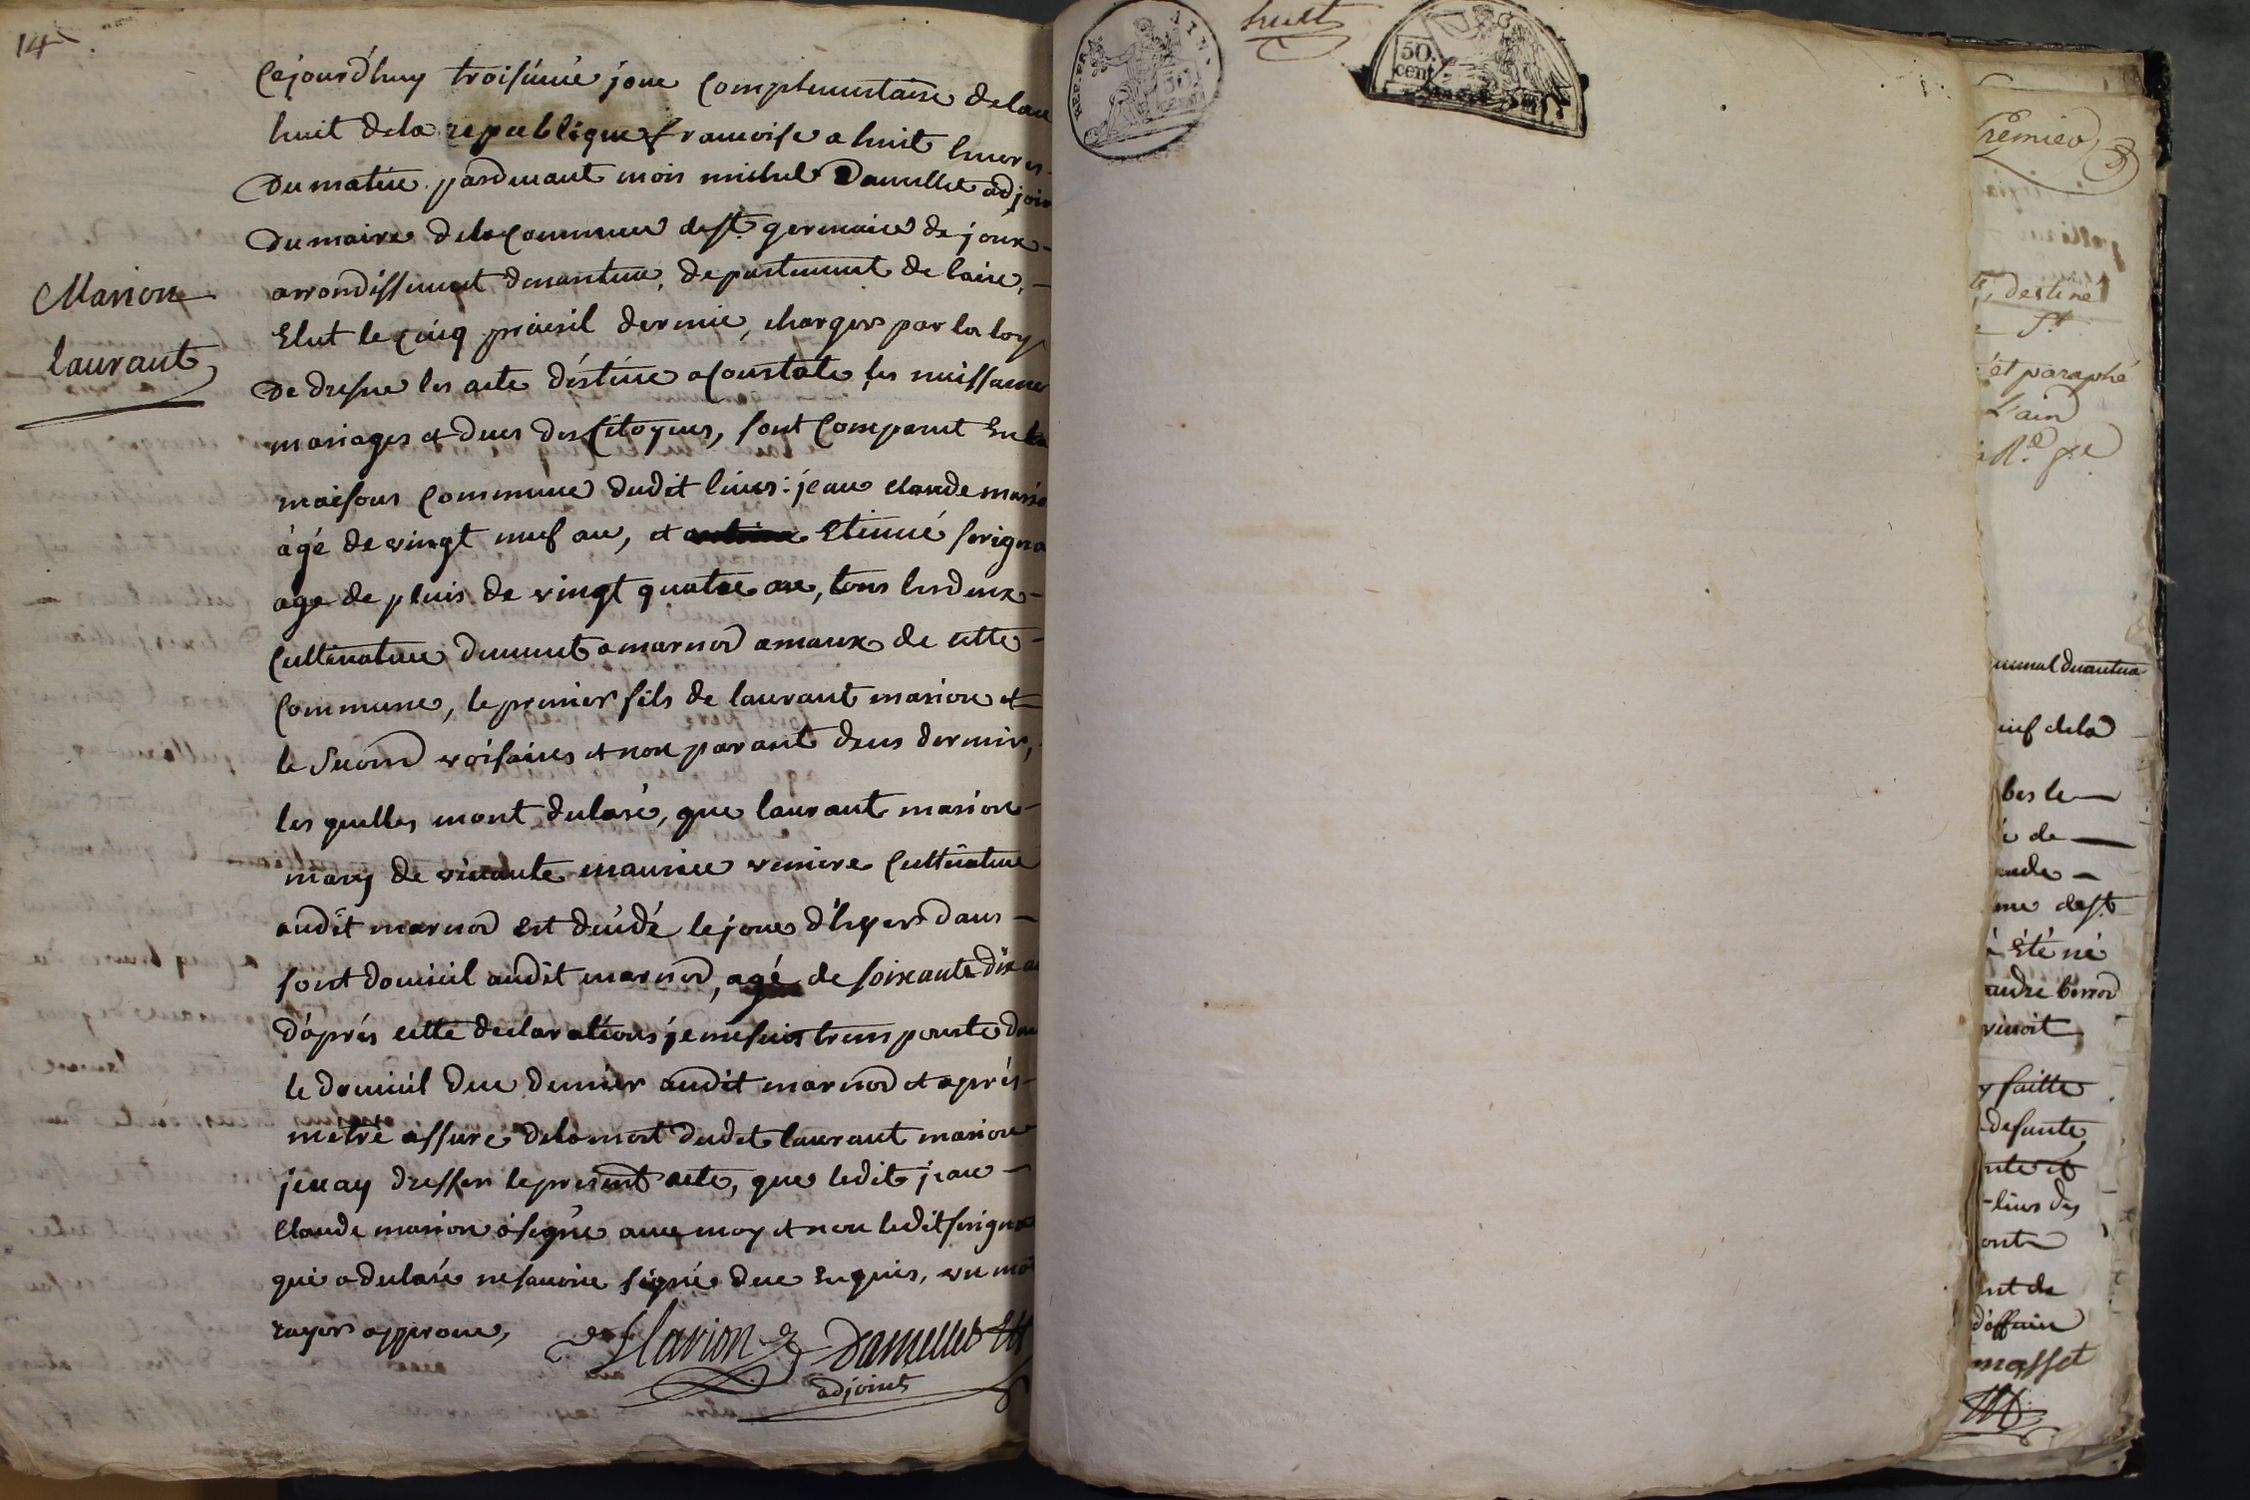 14
Cejourd'huy troisiéme jour Complementaire de lan
huit de la republique francoise a huit heures
Du matin pardevant mois michel Damellet adjoin
Du maire de la Commune de St. germain de joux
arrondissement denantua, departement de lain,
Elut le cinq prairil dernie, charger par la loy
De dresse les acte déstine a Constate les naissance
mariages et deces des Citoyens, sont Comparut En la
maisons Commune dudit lieus: jean claude mario
àgé de vingt neuf an, et Etienné serigna
age de pluis de vingt quatre an, tous les deux
Cultivateur demeurt a marnod amaux de cette
Commune, le premier fils de laurant marion et
le Second voisains et non parant deus dernier,
les quelles mont declaré, que laurant marion
mary de vivante maurice veniere Cultivateur
audit marnod est decédé le jour d'hyer dans
sont domicil audit marnod, agé de soixante dix an
D'aprés cette declarations je me suis trans porte dan
le domicil duce dernier audit marnod et aprés
métre assure de la mort dudit laurant marion
jen ay dresser le present acte, que ledit jean
Claude marion a signe avec moy et non ledit serigna
qui a declaré ne savoire signé dece Enquis, un mot
rayer approuve,
Marion
Damellet
adjoint
Marion
laurant
huit
REP. FRA.
50.
cent
Premier
destiné
St
et paraphé
L'ain
neuf de la
bes le
é de
me de St
Eté né
andre
y faitte
defunte
lieus des
ont
ent de
masset